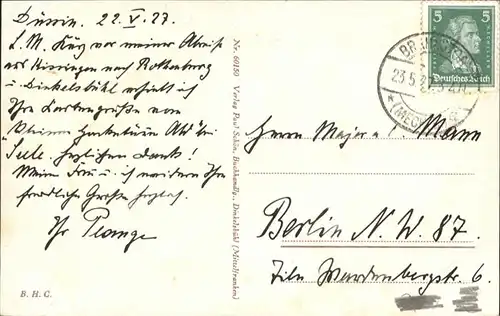 Düssin. 22. V. 27.
L. M. Kurz vor meiner Abreise
aus Kissingen nach Rothenburg
u. Dinkelsbühl erhielt ich
Ihre Kartengrüße vom
bei
herzlichen Dank!
Meine Frau u. ich erwidern Ihre
freundlichen Grüße herzlichst.
Ihr Plange
B. H. C.
Nr. 60150 Verlag Paul Schön, Buchhandlg., Dinkelsbühl (Mittelfranken)
5 5
Deutsches Reich
23.5.27
Herrn Major a. D. Mann
Berlin N. W. 87.
Wardenbergstr. 6.